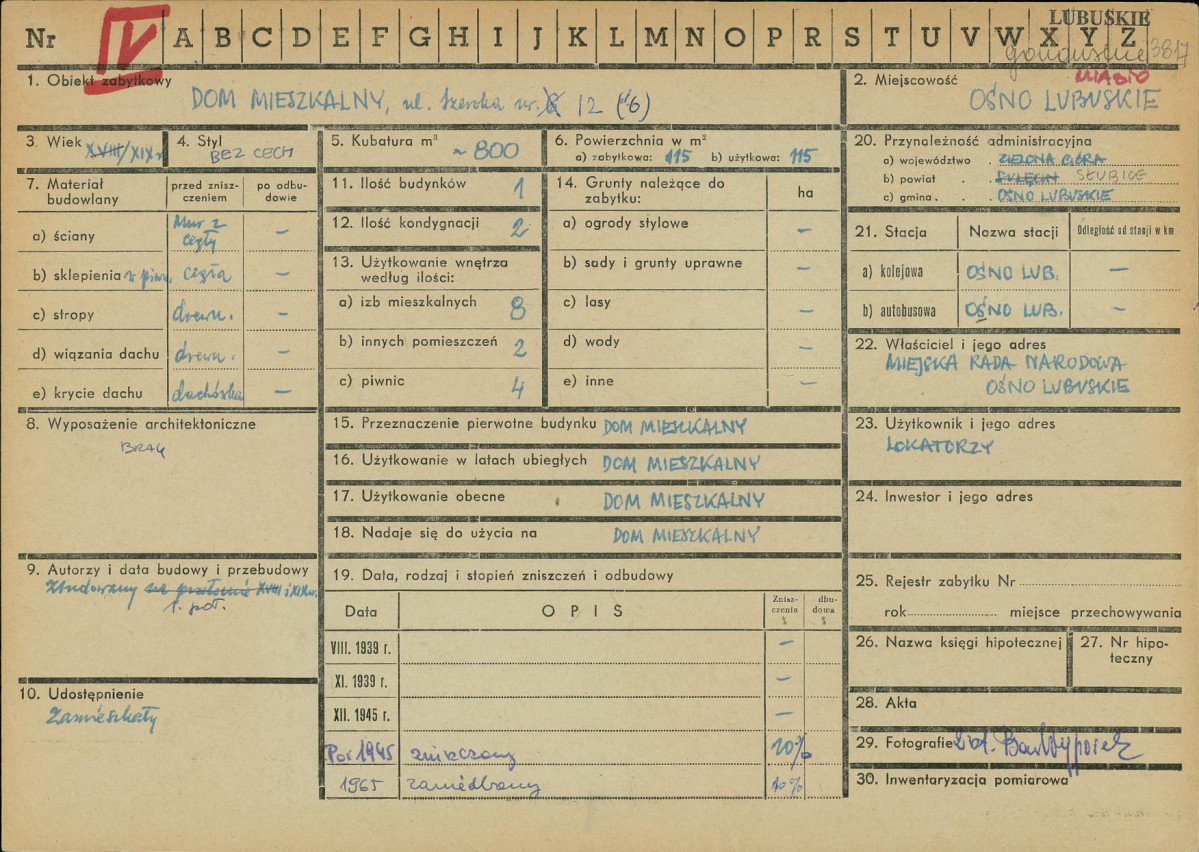 LUBUSKIE
Nr IV A B C D E F G H I J K L M N O P R S T U V W X Y Z
gorzowskie 3817
1. Obiekt zabytkowy
DOM MIESZKALNY, ul. Szeroka nr. 8 12 (d6)
2. Miejscowość
MIASTO
OŚNO LUBUSKIE
3. Wiek XVIII/XIX w
4. Styl
BEZ CECH
5. Kubatura m³ ~ 800
6. Powierzchnia w m²
a) zabytkowa: 115 b) użytkowa: 115
20. Przynależność administracyjna
a) województwo . ZIELONA GÓRA
b) powiat . . SULĘCIN SŁUBICE
c) gmina . . OŚNO LUBUSKIE
7. Materiał budowlany
przed znisz-
czeniem
po odbu-
dowie
a) ściany Mur z cegły –
b) sklepienia w piwn. cegła –
c) stropy drewn. –
d) wiązania dachu drewn. –
e) krycie dachu dachówka –
11. Ilość budynków 1
12. Ilość kondygnacji 2
13. Użytkowanie wnętrza
według ilości:
a) izb mieszkalnych 8
b) innych pomieszczeń 2
c) piwnic 4
14. Grunty należące do
zabytku:
ha
a) ogrody stylowe –
b) sady i grunty uprawne –
c) lasy –
d) wody –
e) inne –
21. Stacja Nazwa stacji Odległość od stacji w km
a) kolejowa OŚNO LUB. –
b) autobusowa OŚNO LUB. –
22. Właściciel i jego adres
MIEJSKA RADA NARODOWA
OŚNO LUBUSKIE
8. Wyposażenie architektoniczne
BRAK
15. Przeznaczenie pierwotne budynku DOM MIESZKALNY
16. Użytkowanie w latach ubiegłych DOM MIESZKALNY
17. Użytkowanie obecne DOM MIESZKALNY
18. Nadaje się do użycia na DOM MIESZKALNY
23. Użytkownik i jego adres
LOKATORZY
24. Inwestor i jego adres
9. Autorzy i data budowy i przebudowy
Zbudowany na przełomie XVIII i XIX w.
1. poł.
10. Udostępnienie
Zamieszkały
19. Data, rodzaj i stopień zniszczeń i odbudowy
Data OPIS
Znisz-
czenia
%
dbu-
dowa
%
VIII. 1939 r. –
XI. 1939 r. –
XII. 1945 r. –
Por 1945 zniszczony 20%
1965 zaniedbany 10%
25. Rejestr zabytku Nr
rok miejsce przechowywania
26. Nazwa księgi hipotecznej
27. Nr hipo-
teczny
28. Akta
29. Fotografie
30. Inwentaryzacja pomiarowa